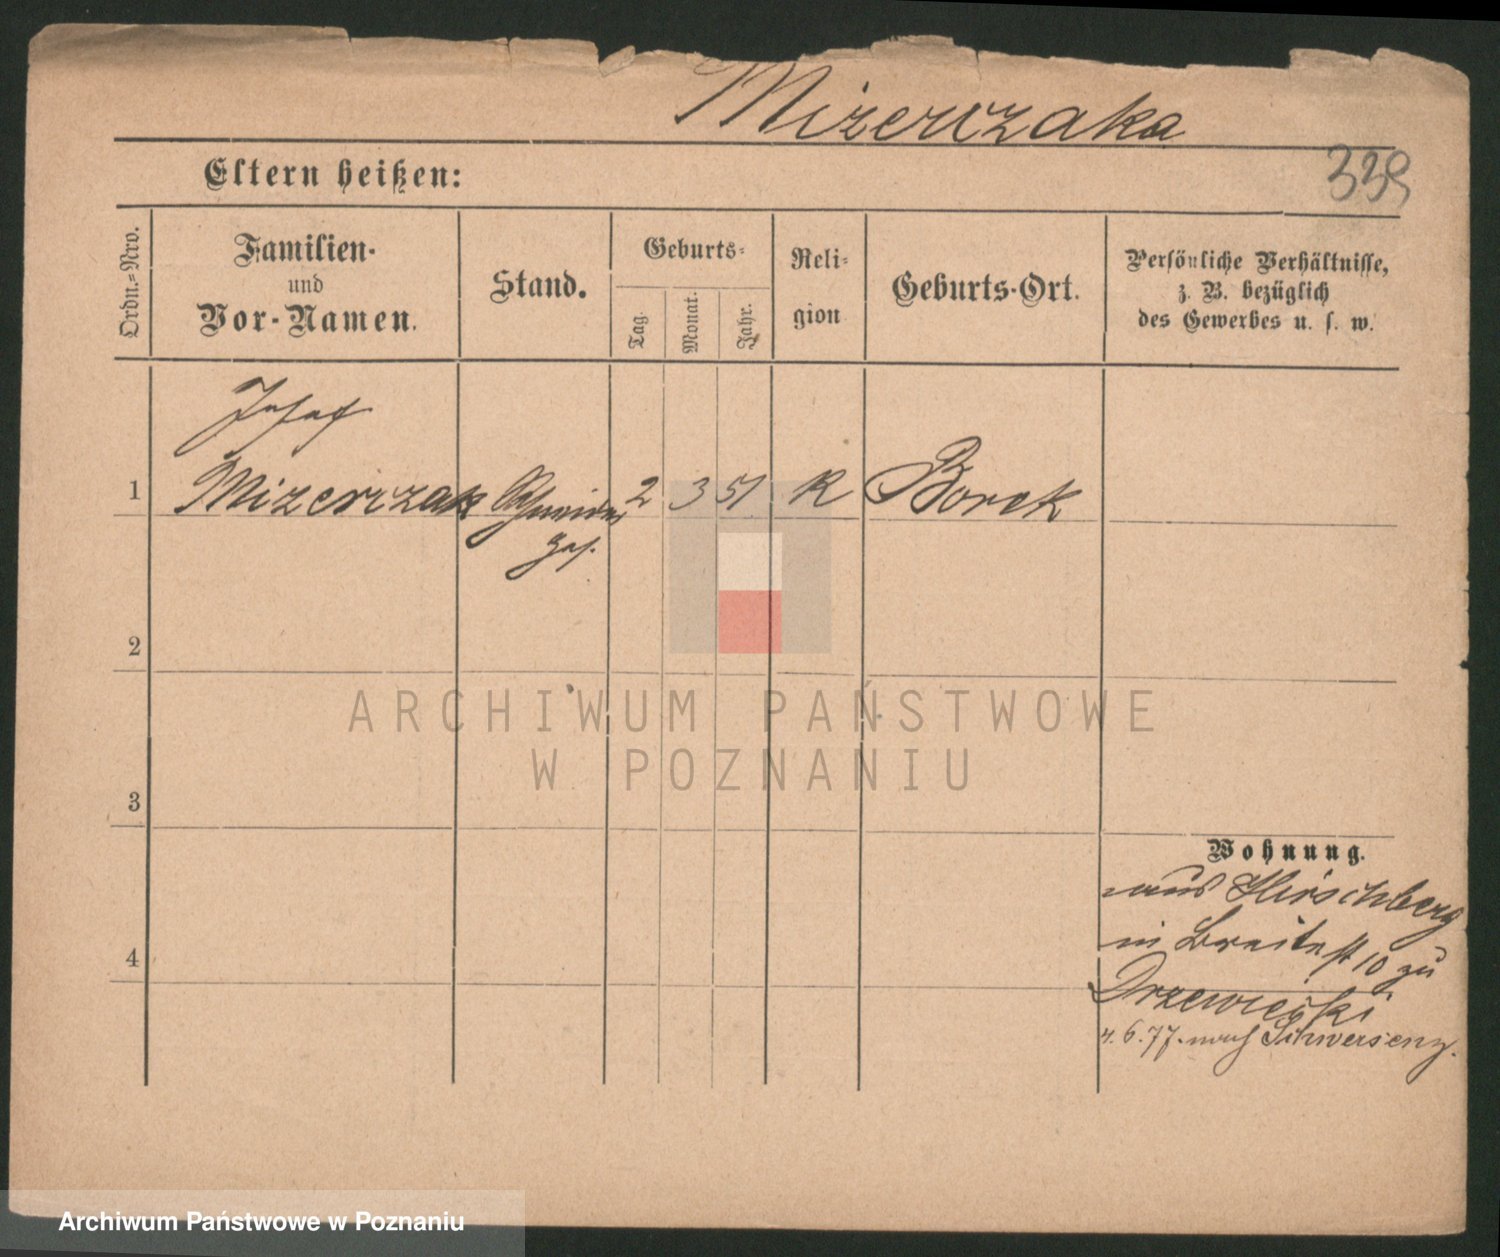 Mizerczaka
339
Eltern heißen:
Ordn.-Nro.
Familien-
und
Vor-Namen.
Stand.
Geburts-
Tag.
Monat.
Jahr.
Reli-
gion
Geburts-Ort.
Persönliche Verhältnisse,
z. B. bezüglich
des Gewerbes u. s. w.
Josef
1 Mizerczak Schneider 2 3 51 K Borek
Ges.
2
ARCHIWUM PAŃSTWOWE
W POZNANIU
3
Wohnung.
aus Hirschberg
4
in Breitest 10 zu
Drzewiecki
4. 6. 77. nach Schwersenz.
Archiwum Państwowe w Poznaniu